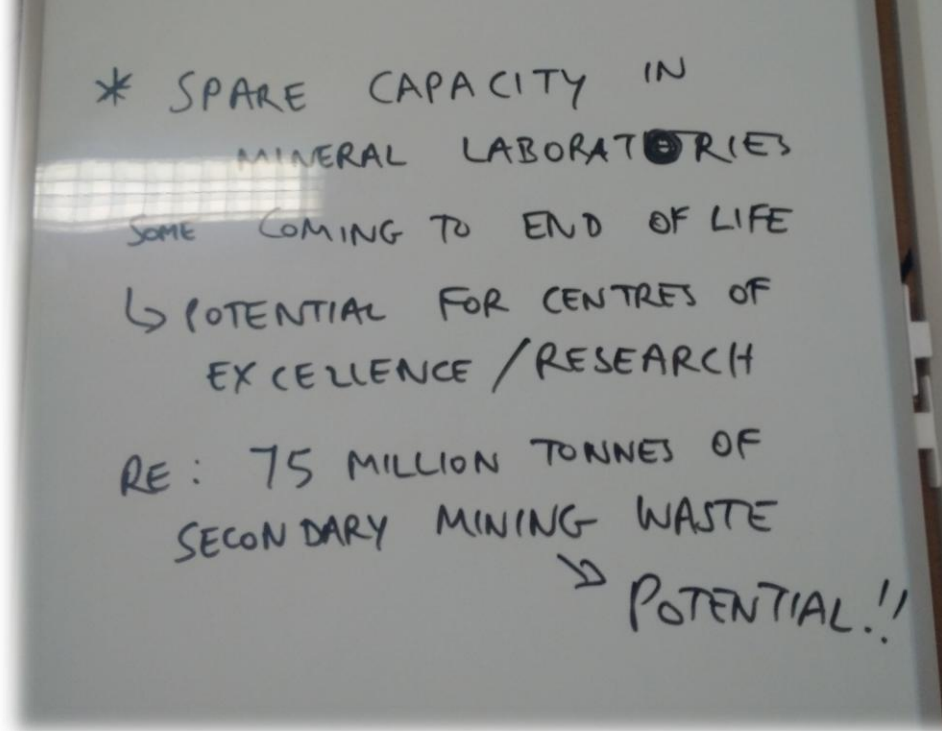 * SPARE CAPACITY IN
MINERAL LABORATORIES
SOME COMING TO END OF LIFE
↳ POTENTIAL FOR CENTRES OF
EXCELLENCE / RESEARCH
RE: 75 MILLION TONNES OF
SECONDARY MINING WASTE
↘ POTENTIAL!!